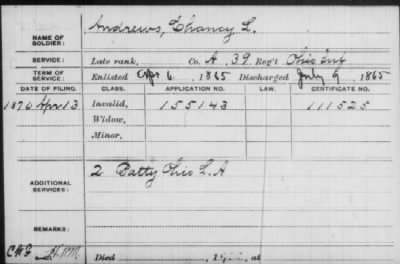 NAME OF SOLDIER: Andrews, Chancy L.
SERVICE: Late rank, Co. A, 39 Reg't Ohio Inf
TERM OF SERVICE: Enlisted Apr 6, 1865 Discharged July 9, 1865
DATE OF FILING. CLASS. APPLICATION NO. LAW. CERTIFICATE NO.
1870 Apr 13 Invalid, 155143 111525
Widow,
Minor,
ADDITIONAL SERVICES: 2 Batty Ohio L. A
REMARKS:
Died , 19 , at